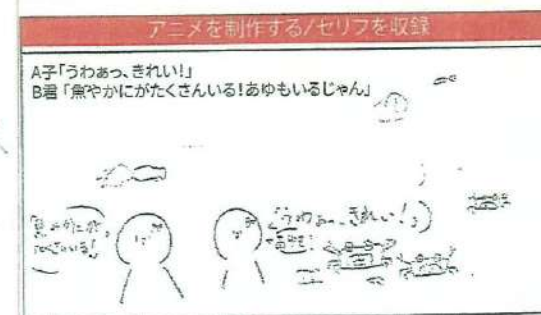 アニメを制作する/セリフを収録
A子「うわぁっ、きれい!」
B君「魚やかにがたくさんいる!あゆもいるじゃん」
魚やかにが、
たくさんいる!
「うわぁっ、きれい!」